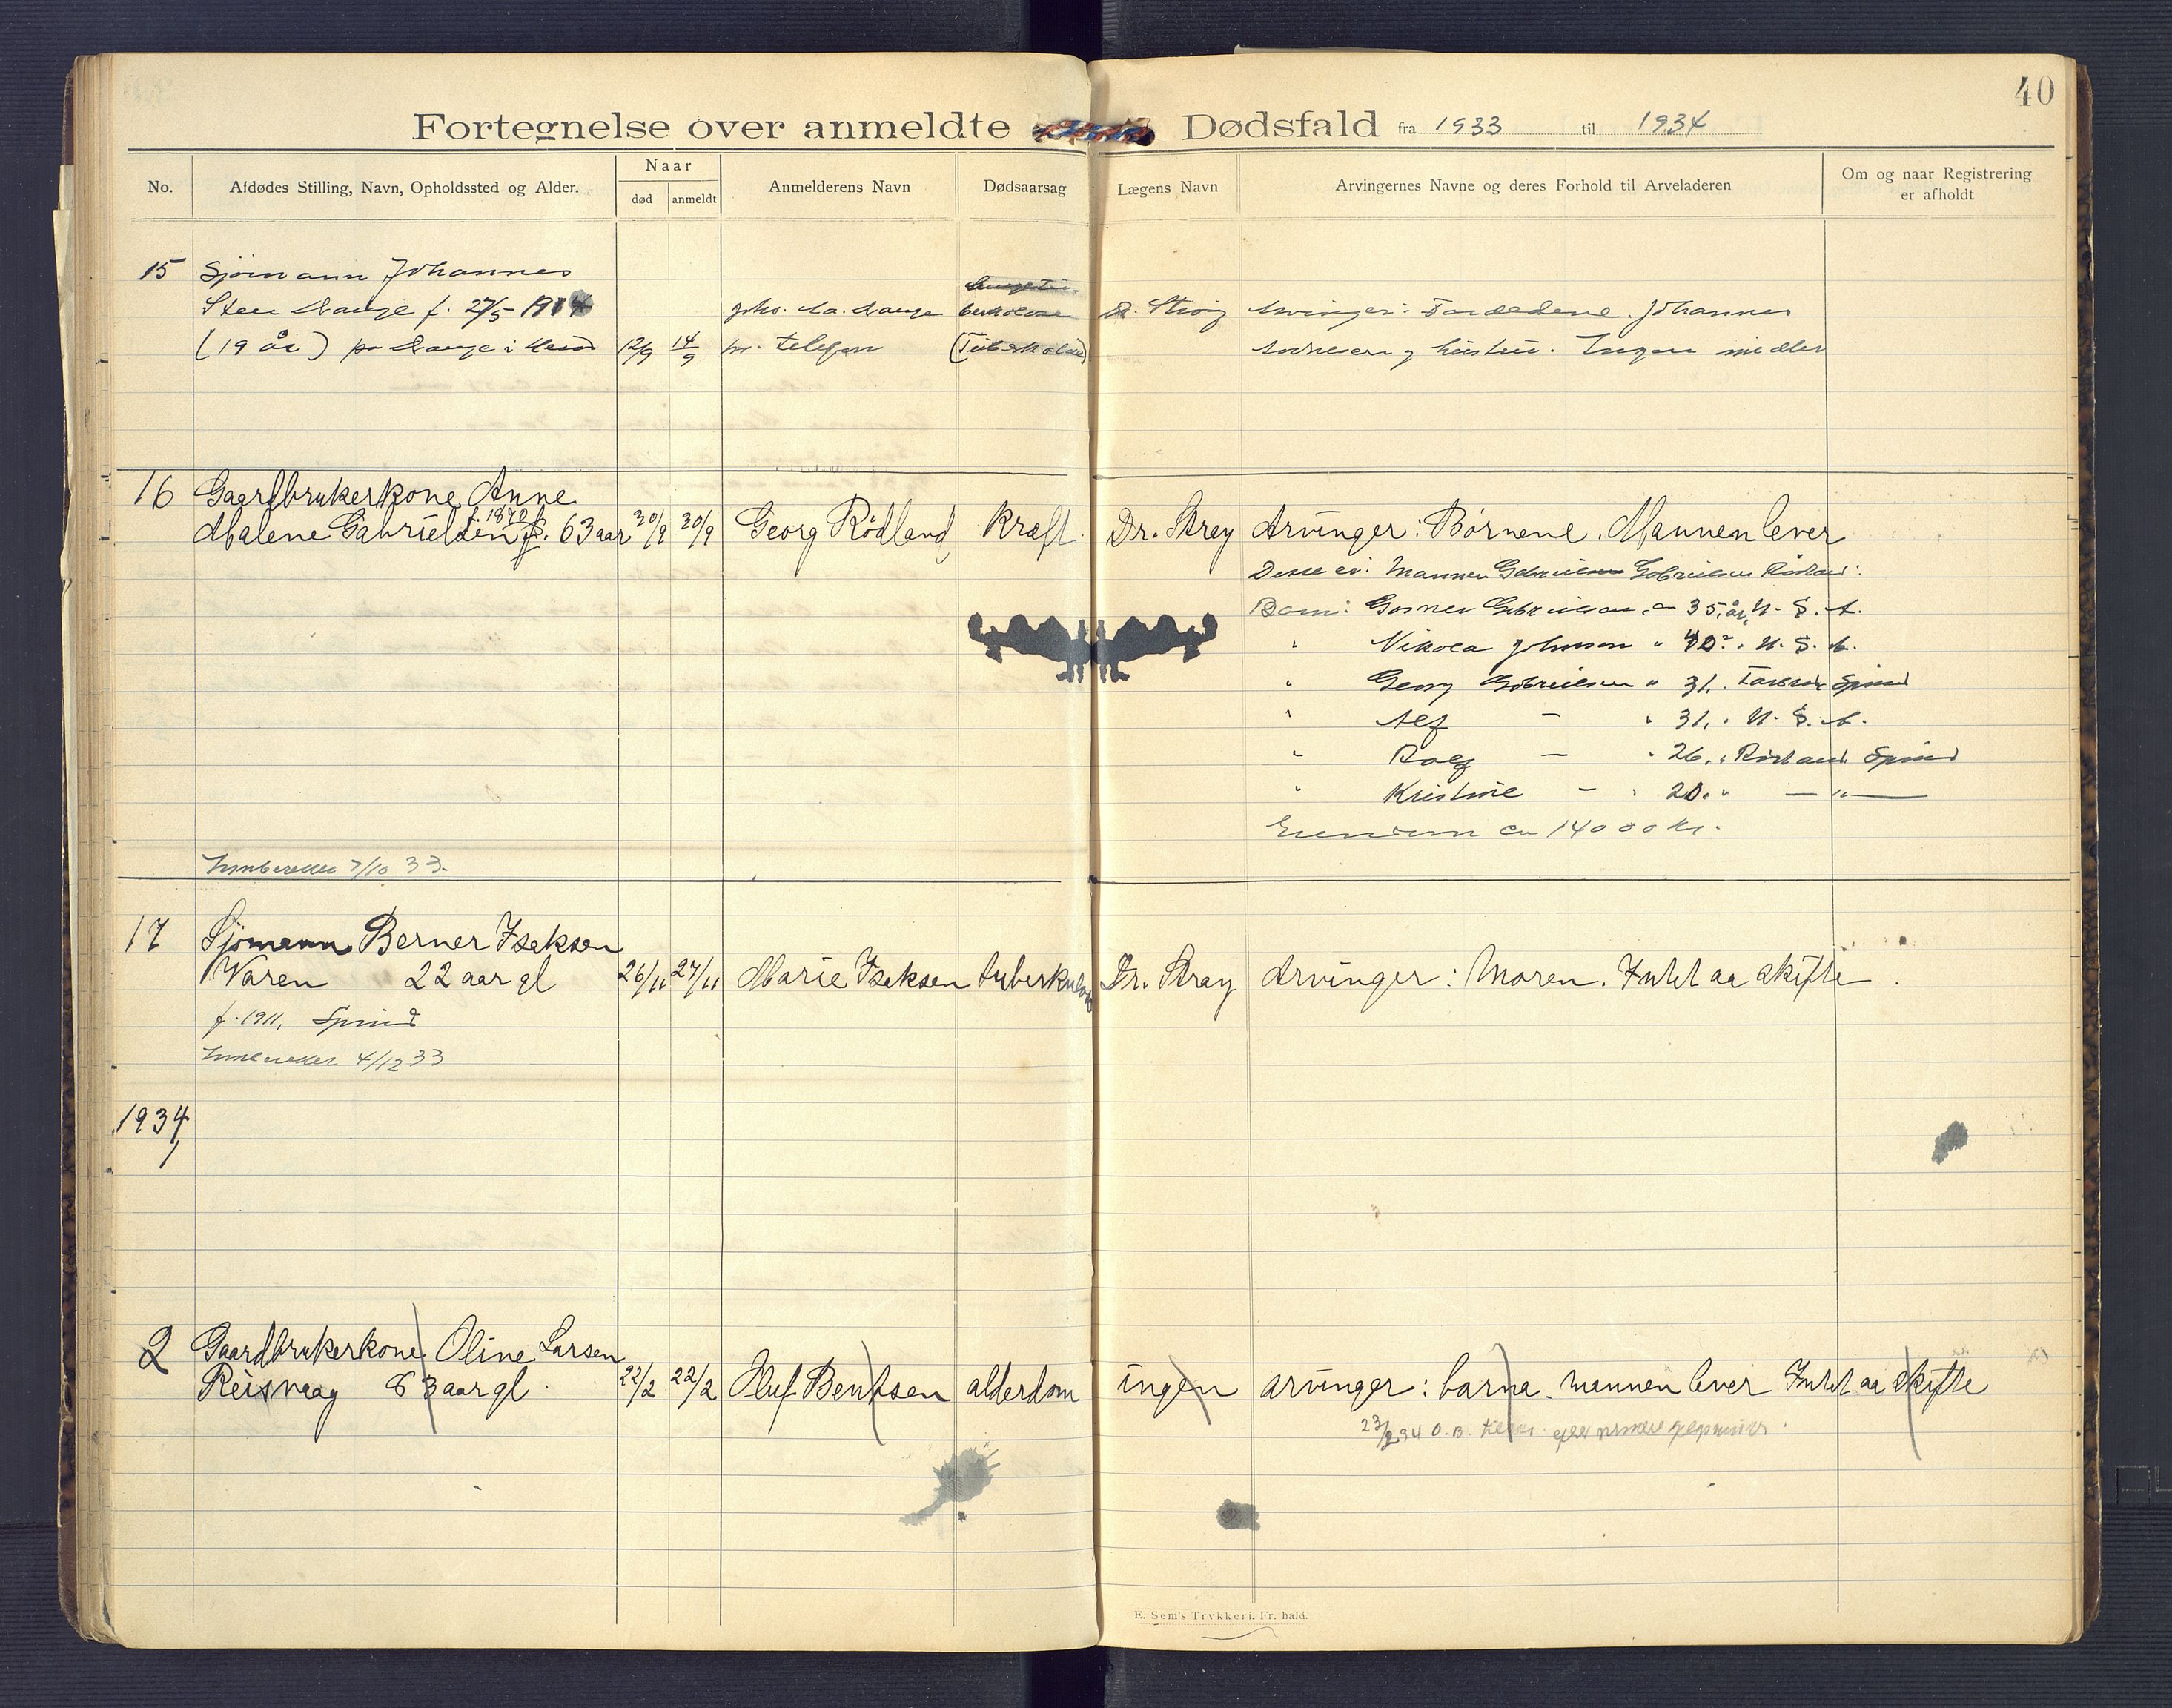 40
Fortegnelse over anmeldte Dødsfald fra 1933 til 1934
No.
Afdødes Stilling, Navn, Opholdssted og Alder.
Naar
død
anmeldt
Anmelderens Navn
Dødsaarsag
Lægens Navn
Arvingernes Navne og deres Forhold til Arveladeren
Om og naar Registrering
er afholdt
15 Sjømann Johannes
Sten Lauge f. 27/5 1914
(19 år) på Lauge i
12/9 14/9
pr. telefon
(Tuberkulose)
Arvinger: Foreldrene. Johannes
og hustru. Ingen midler
16 Gaardbrukerkone Anne
Malene Gabrielsen f. 1870 63 aar 30/9 30/9 Georg Rødland Kræft. Dr. Stray Arvinger: Børnene. Mannen lever
Disse er: Mannen Gabriel Gabrielsen Rødland:
Barn: Gabrielsen, ca 35, år, U. S. A.
" Johnsen " 40 " U. S. A.
" Georg Gabrielsen " 31, Spind
" Alf — " 31, " U. S. A.
" Rolf — " 26, " Rødland Spind
" Kristine — " 20, " — " —
Eiendom ca 14000 kr.
Innberettet 7/10 33.
17 Sjømann Berner Isaksen
Varen 22 aar gl 26/11 27/11 Marie Isaksen tuberkulose Dr. Stray Arvinger: Moren. Intet aa skifte.
f. 1911, Spind
Innberettet 4/12 33
1934
2 Gaardbrukerkone Oline Larsen
Reisvaag 83 aar gl. 22/2 22/2 Oluf Bentsen alderdom ingen arvinger: barna. mannen lever Intet aa skifte
23/2 34 O. B.
E. Sem's Trykkeri. Fr. hald.